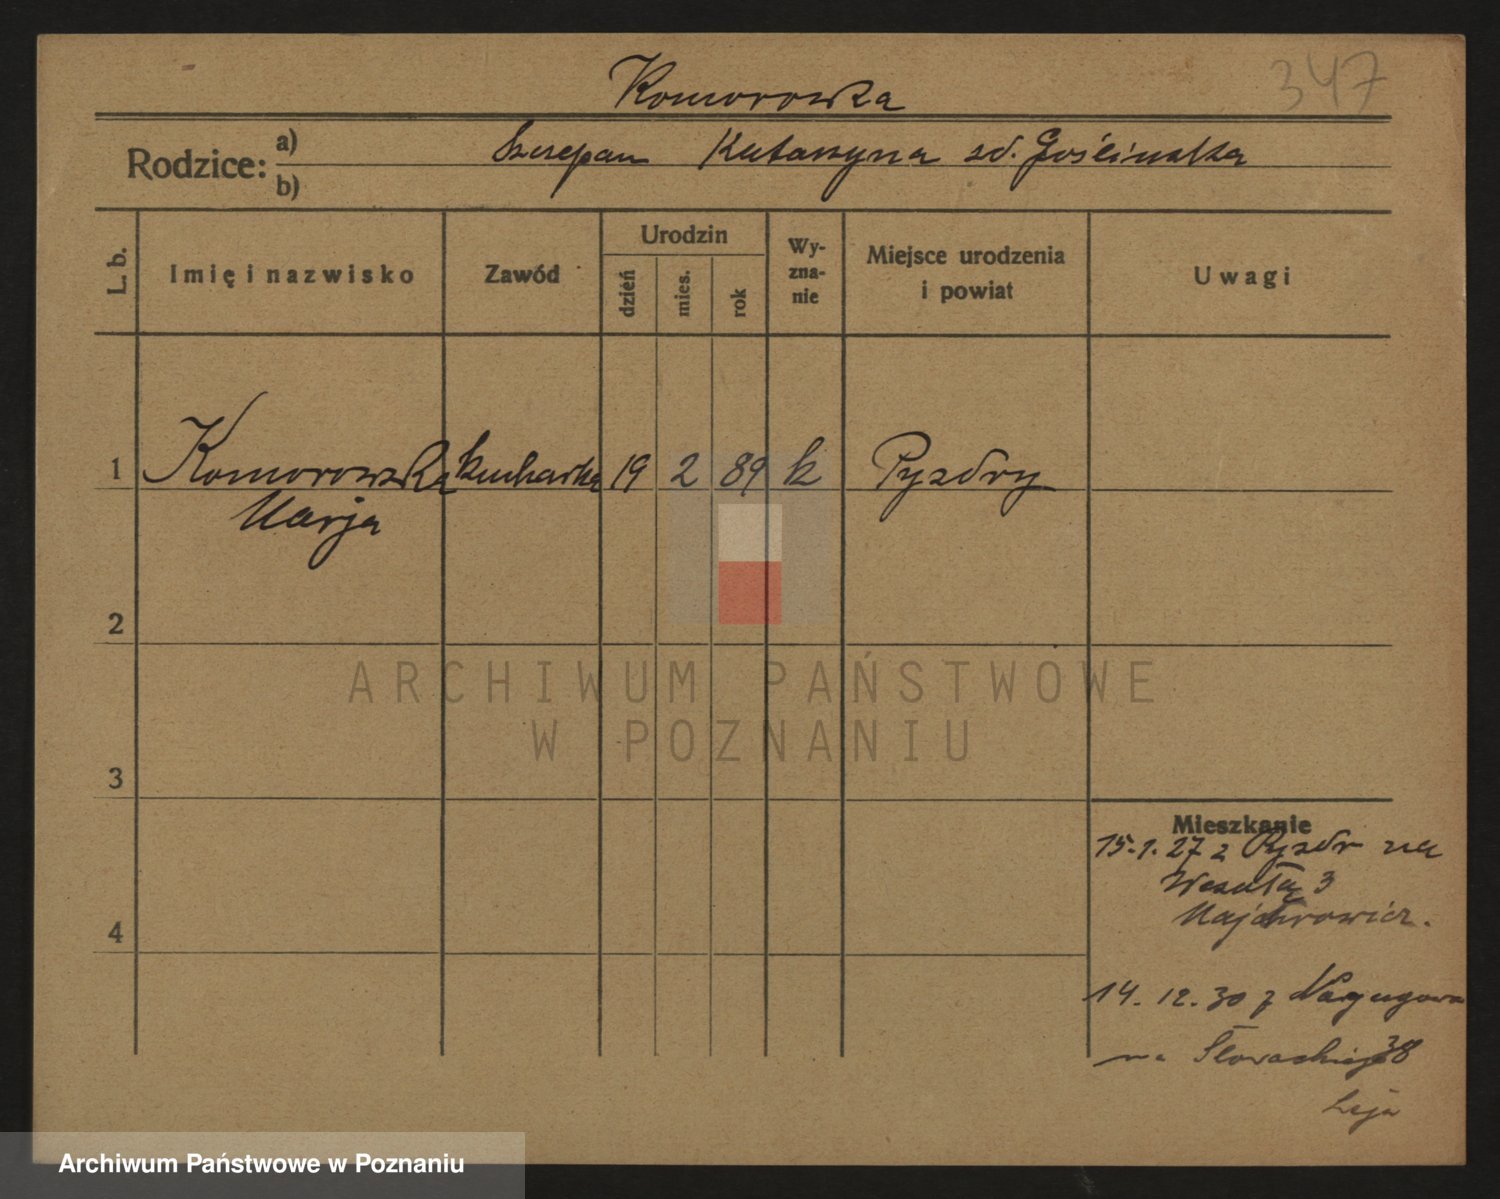 347
Komorowska
Rodzice: a) b) Szczepan Katarzyna zd. Goślinska
L. b.
Imię i nazwisko
Zawód
Urodzin
dzień
mies.
rok
Wy-
zna-
nie
Miejsce urodzenia
i powiat
Uwagi
1 Komorowska kucharka 19 2 89 k Pyzdry
Marja
2
3
4
ARCHIWUM PAŃSTWOWE
W POZNANIU
Mieszkanie
15.1.27 z Pyzdr na
Wesołą 3
Majchrowicz.
14. 12. 30 z
na Słowackiego 38
Archiwum Państwowe w Poznaniu